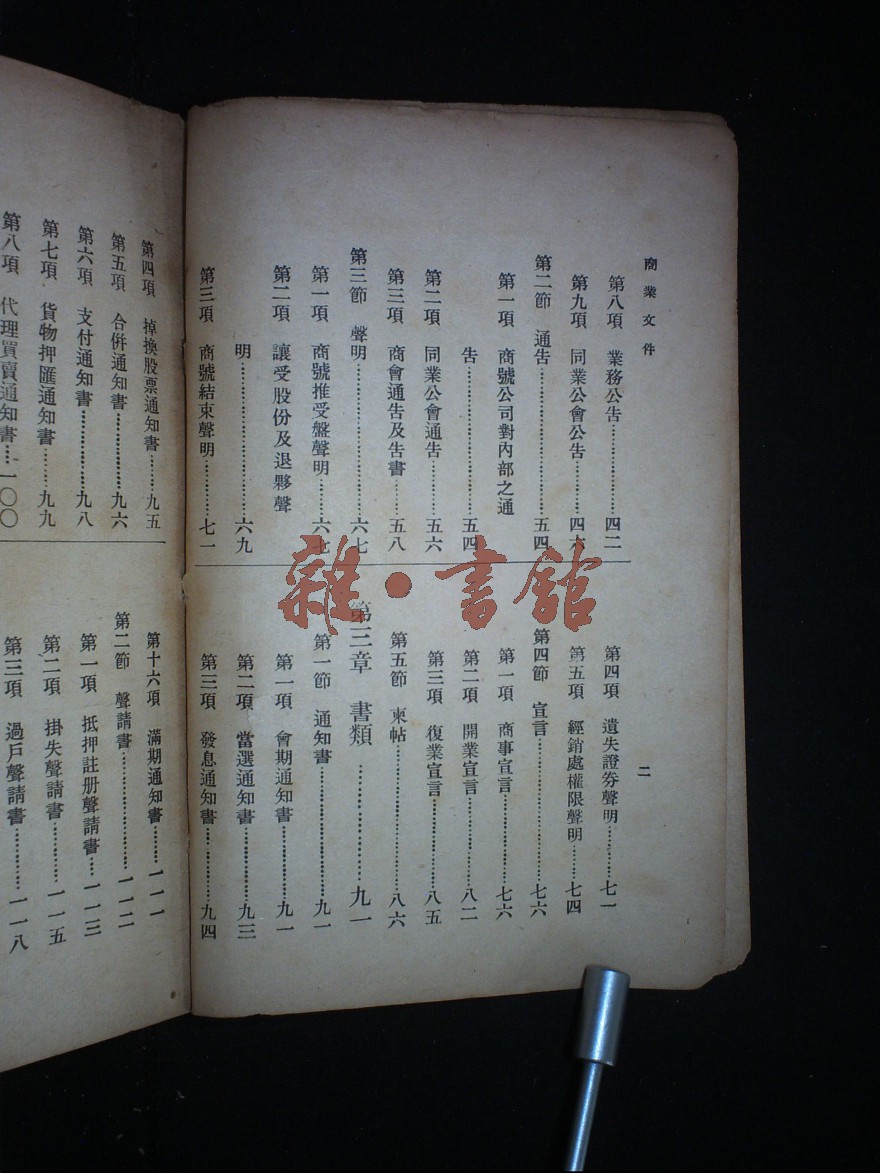 商業文件
第八項　業務公告…………四二
第九項　同業公會公告…………四六
第二節　通告…………五四
第一項　商號公司對內部之通
告…………五四
第二項　同業公會通告…………五六
第三項　商會通告及告書…………五八
第三節　聲明…………六七
第一項　商號推受盤聲明…………六七
第二項　讓受股份及退夥聲
明…………六九
第三項　商號結束聲明…………七一
二
第四項　遺失證券聲明…………七一
第五項　經銷處權限聲明…………七四
第四節　宣言…………七六
第一項　商事宣言…………七六
第二項　開業宣言…………八二
第三項　復業宣言…………八五
第五節　柬帖…………八六
第三章　書類…………九一
第一節　通知書…………九一
第一項　會期通知書…………九一
第二項　當選通知書…………九三
第三項　發息通知書…………九四
第四項　掉換股票通知書…………九五
第五項　合併通知書…………九六
第六項　支付通知書…………九八
第七項　貨物押匯通知書…………九九
第八項　代理買賣通知書…………一〇〇
第十六項　滿期通知書…………一一一
第二節　聲請書…………一一二
第一項　抵押註册聲請書…………一一三
第二項　掛失聲請書…………一一五
第三項　過戶聲請書…………一一八
雜·書館